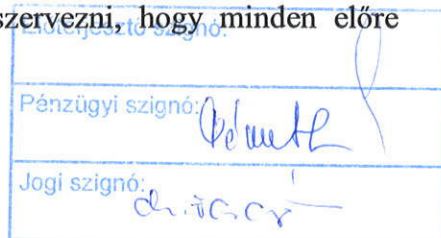 szervezni, hogy minden előre
Előterjesztő szignó:
Pénzügyi szignó:
Jogi szignó: